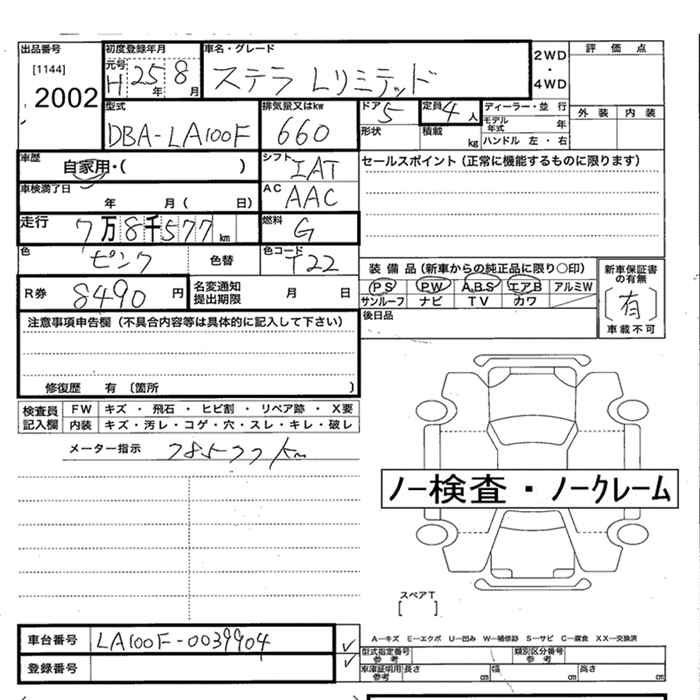 出品番号 初度登録年月 車名・グレード 2WD・4WD 評価点
[1144] 元号 H 25年 8月 ステラ Lリミテッド
2002
型式 排気量又はkw ドア 5 定員 4人 ディーラー・並行 外装 内装
DBA-LA100F 660 形状 積載 kg モデル年式 年
ハンドル 左・右
車歴 自家用・( ) シフト IAT セールスポイント(正常に機能するものに限ります)
車検満了日 年 月( 日) AC AAC
走行 7万8千577km 燃料 G
色 ピンク 色替 色コード T22 装備品(新車からの純正品に限り○印) 新車保証書の有無
R券 8490円 名変通知提出期限 月 日 PS PW ABS エアB アルミW [有]
サンルーフ ナビ TV カワ 車載不可
注意事項申告欄(不具合内容等は具体的に記入して下さい) 後日品
修復歴 有 〔箇所 〕
検査員記入欄 FW キズ・飛石・ヒビ割・リペア跡・X要
内装 キズ・汚レ・コゲ・穴・スレ・キレ・破レ
メーター指示 78577km
ノー検査・ノークレーム
スペアT
[ ]
車台番号 LA100F-0039904 A−キズ E−エクボ U−凹み W−補修跡 S−サビ C−腐食 XX−交換済
型式指定番号 参考 類別区分番号 参考
登録番号 車庫証明用 参考 長さ cm 幅 cm 高さ cm